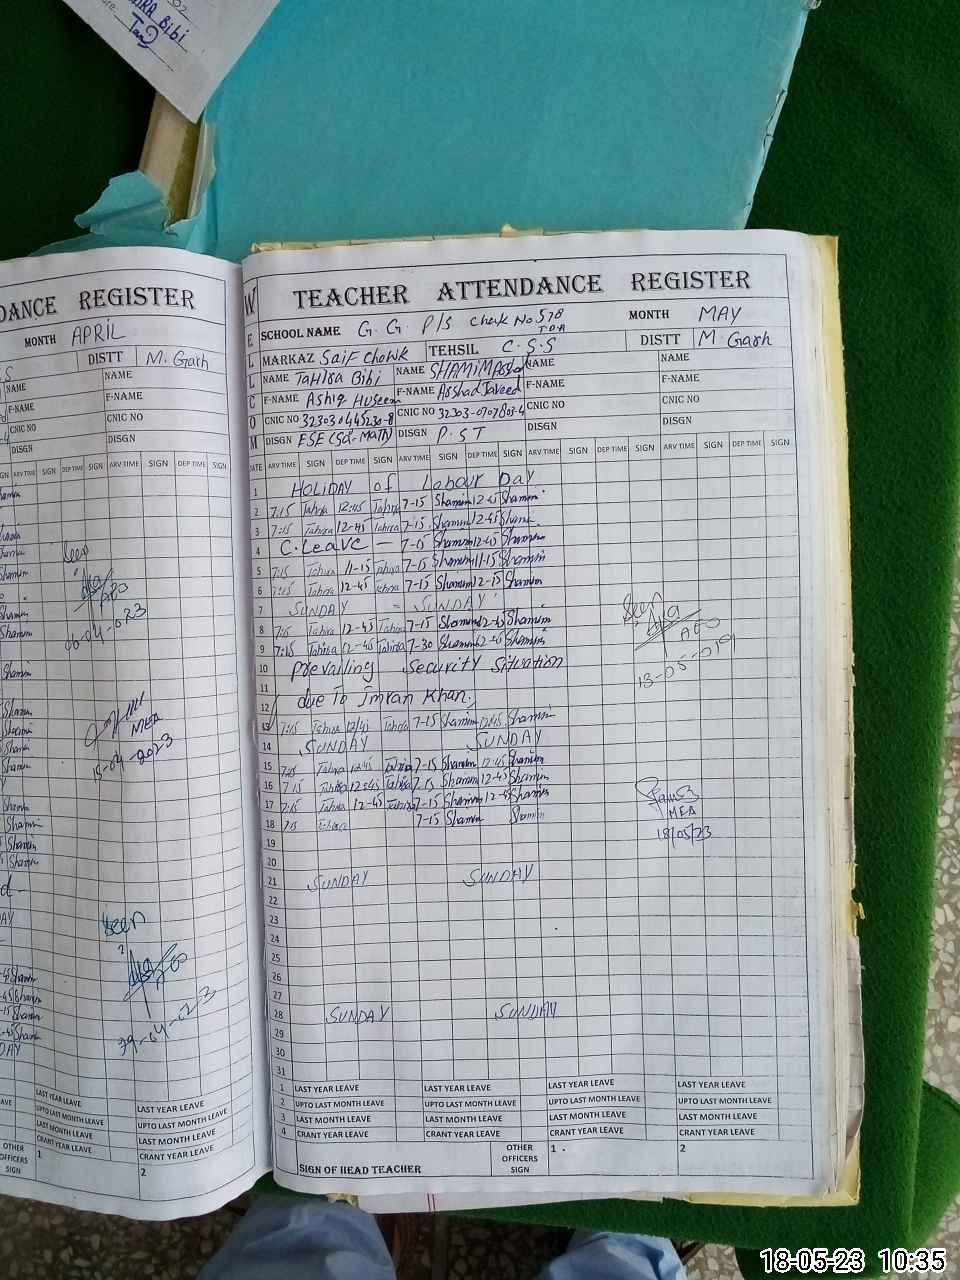 Bibi
DANCE REGISTER
MONTH APRIL
DISTT M. Garh
NAME NAME
F-NAME F-NAME
CNIC NO CNIC NO
DISGN DISGN
SIGN ARV TIME SIGN DEP TIME SIGN ARV TIME SIGN DEP TIME SIGN
Seen
AEO
MEA
18-04-2023
Seen
AEO
LAST YEAR LEAVE LAST YEAR LEAVE
UPTO LAST MONTH LEAVE UPTO LAST MONTH LEAVE
LAST MONTH LEAVE LAST MONTH LEAVE
CRANT YEAR LEAVE CRANT YEAR LEAVE
OTHER OFFICERS SIGN 1 2
WELCOM
TEACHER ATTENDANCE REGISTER
SCHOOL NAME G.G. P/S Chak No 578 TDA MONTH MAY
MARKAZ Saif Chowk TEHSIL C.S.S DISTT M. Garh
NAME TaHIRa Bibi NAME SHAMIM NAME NAME
F-NAME Ashiq Huseen F-NAME Arshad Javeed F-NAME F-NAME
CNIC NO CNIC NO 32303-0707803-4 CNIC NO CNIC NO
DISGN ESE (Sci-Math) DISGN P.ST DISGN DISGN
DATE ARV TIME SIGN DEP TIME SIGN ARV TIME SIGN DEP TIME SIGN ARV TIME SIGN DEP TIME SIGN ARV TIME SIGN DEP TIME SIGN
1 HOLIDAY of Labour Day
2 7:15 Tahira 12:45 Tahira 7-15 Shamim 12-45 Shamim
3 7:15 Tahira 12-45 Tahira 7-15 Shamim 12-45 Shamim
4 C.Leave — 7-15 Shamim 12-45 Shamim
5 7:15 Tahira 11-15 Tahira 7-15 Shamim 11-15 Shamim
6 7:15 Tahira 12-45 Tahira 7-15 Shamim 12-15 Shamim
7 SUNDAY - SUNDAY
8 7:15 Tahira 12-45 Tahira 7-15 Shamim 12-45 Shamim
9 7:15 Tahira 12-45 Tahira 7-30 Shamim 12-45 Shamim
Seen
AEO
10 Prevailing Security Situation
11
12 due To Imran Khan.
13 7:15 Tahira 12/45 Tahira 7-15 Shamim 12:45 Shamim
14 SUNDAY SUNDAY
15 7:15 Tahira 12:45 Tahira 7-15 Shamim 12:45 Shamim
16 7:15 Tahira 12:45 Tahira 7:15 Shamim 12-45 Shamim
17 7:15 Tahira 12-45 Tahira 7-15 Shamim 12-45 Shamim
18 7:15 Tahira 7-15 Shamim Shamim
MEA
18/05/23
19
20
21 SUNDAY SUNDAY
22
23
24
25
26
27
28 SUNDAY SUNDAY
29
30
31
1 LAST YEAR LEAVE LAST YEAR LEAVE LAST YEAR LEAVE LAST YEAR LEAVE
2 UPTO LAST MONTH LEAVE UPTO LAST MONTH LEAVE UPTO LAST MONTH LEAVE UPTO LAST MONTH LEAVE
3 LAST MONTH LEAVE LAST MONTH LEAVE LAST MONTH LEAVE LAST MONTH LEAVE
4 CRANT YEAR LEAVE CRANT YEAR LEAVE CRANT YEAR LEAVE CRANT YEAR LEAVE
SIGN OF HEAD TEACHER OTHER OFFICERS SIGN 1 2
18-05-23 10:35